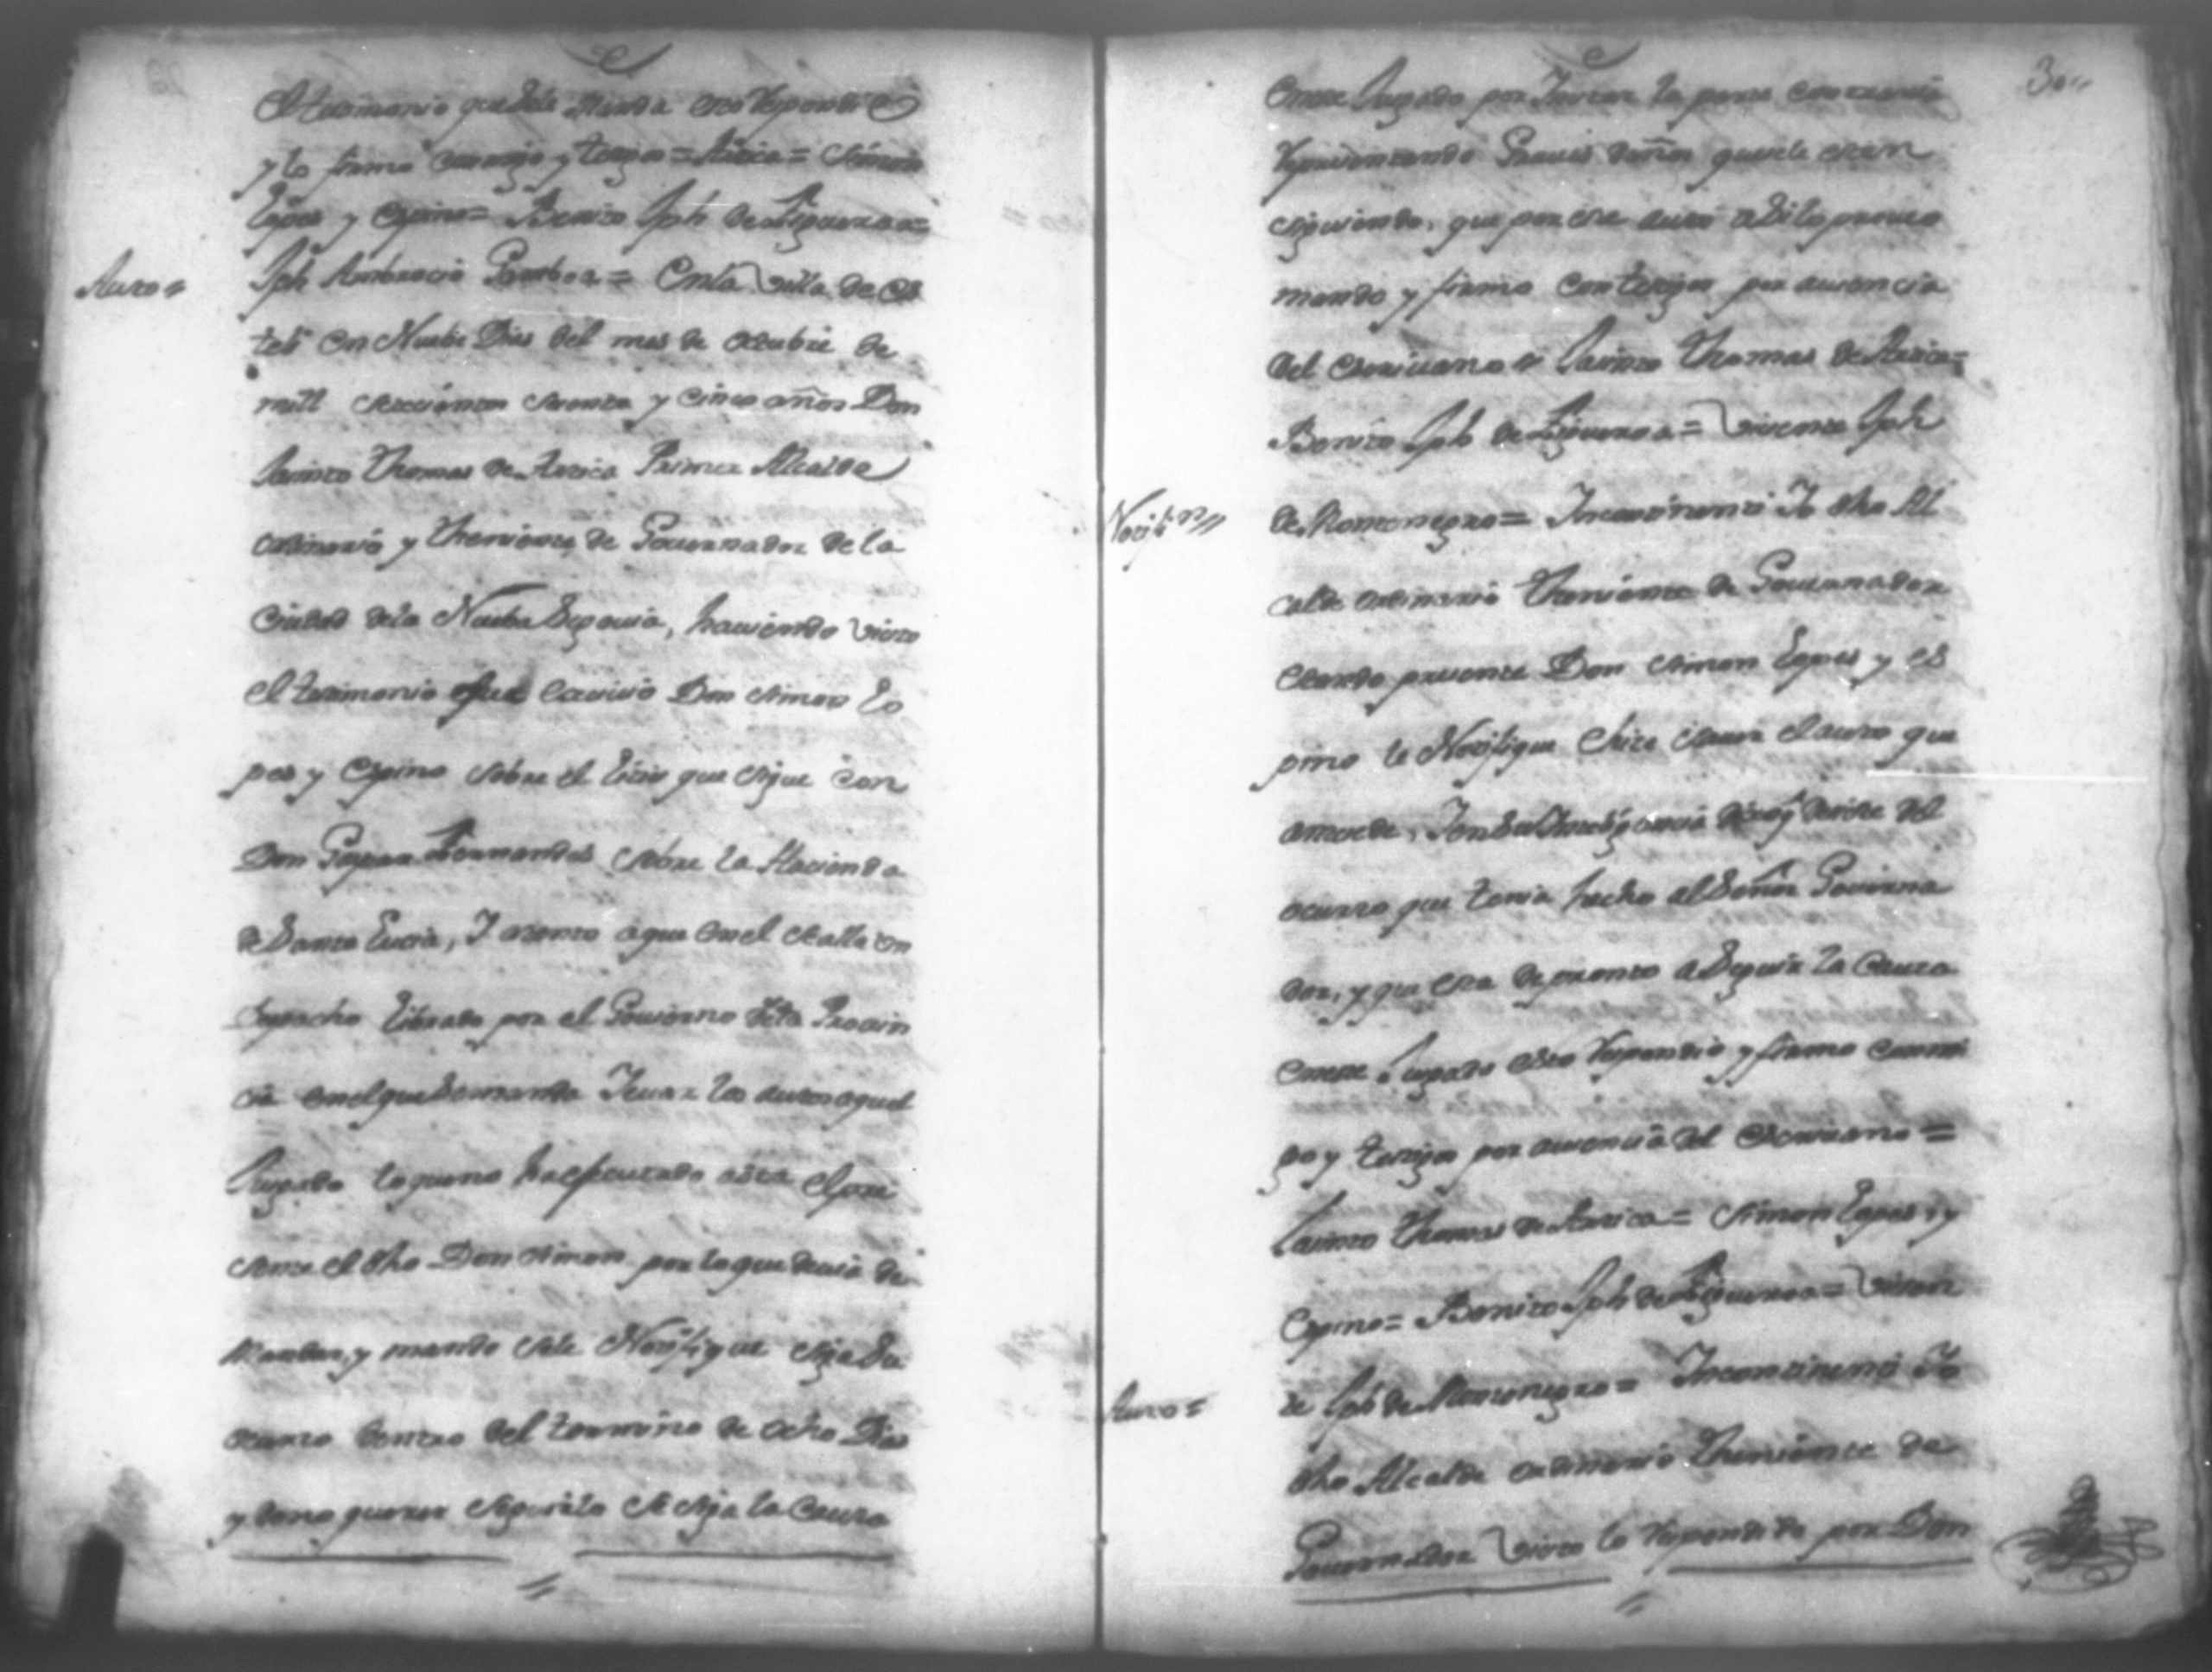 el testimonio que dise manda esto respondio
y lo firmo conmigo y testigos = Arrica = Simon
Lopes y Espino = Benito Jph de Figueroa =
Auto = Jph Ambrocio Gamboa = En la Villa de Es
teli en Nuebe Dias del mes de octubre de
mill setecientos setenta y cinco años Don
Jacinto Thomas de Arrica Primer Alcalde
ordinario y Theniente de Governador de la
Ciudad dela Nueba Segovia, haviendo visto
el testimonio que exivio Don Simon Lo
pes y Espino sobre el Litis que sigue con
Don Gaspar Fernandes sobre la Hacienda
de Santa Lucia, Y atento a que en el se alla un
Despacho librado por el Govierno desta Provin
cia en el que se manda llevar los autos a quel
Jusgado lo que no ha efecutado asta el pre
sente el dho Don Simon por lo que devia de
Mandar, y mando se le Notifique siga su
ocurso dentro del termino de ocho Dias
y de no querer seguirlo se siga la Causa
30
en este Jusgado por Instar la parte contraria
representando Graves daños que se le estan
siguiendo, que por este auto asi lo proveo
mando y firmo con testigos por ausencia
del escrivano = Jacinto Thomas de Arrica =
Benito Jph de Figueroa = Vicente Jph
Notifn de Montenegro = Incontinenti Yo dho Al
calde ordinario Theniente de Governador
estando presente Don Simon Lopes y Es
pino le Notifique e hice saver el auto que
antecede, Y en su
ocurso que tenia hecho al Señor Governa
dor, y que esta de pronto a Seguir la Causa
en este Jusgado esto respondio y firmo conmi
go y testigos por ausencia del Escrivano =
Jacinto Thomas de Arrica = Simon Lopes, y
Espino = Benito Jph de Figueroa = Vicen
Auto = te Jph de Montenegro = Incontinenti Yo
dho Alcalde ordinario Theniente de
Governador Visto lo respondido por Don